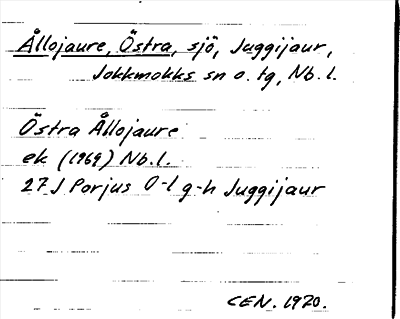 Ållojaure, Östra, sjö, Juggijaur,
Jokkmokks sn o. tg, Nb. l.
Östra Ållojaure
ek (1969) Nb. l.
27J Porjus 0-1 g-h Juggijaur
CEN. 1970.